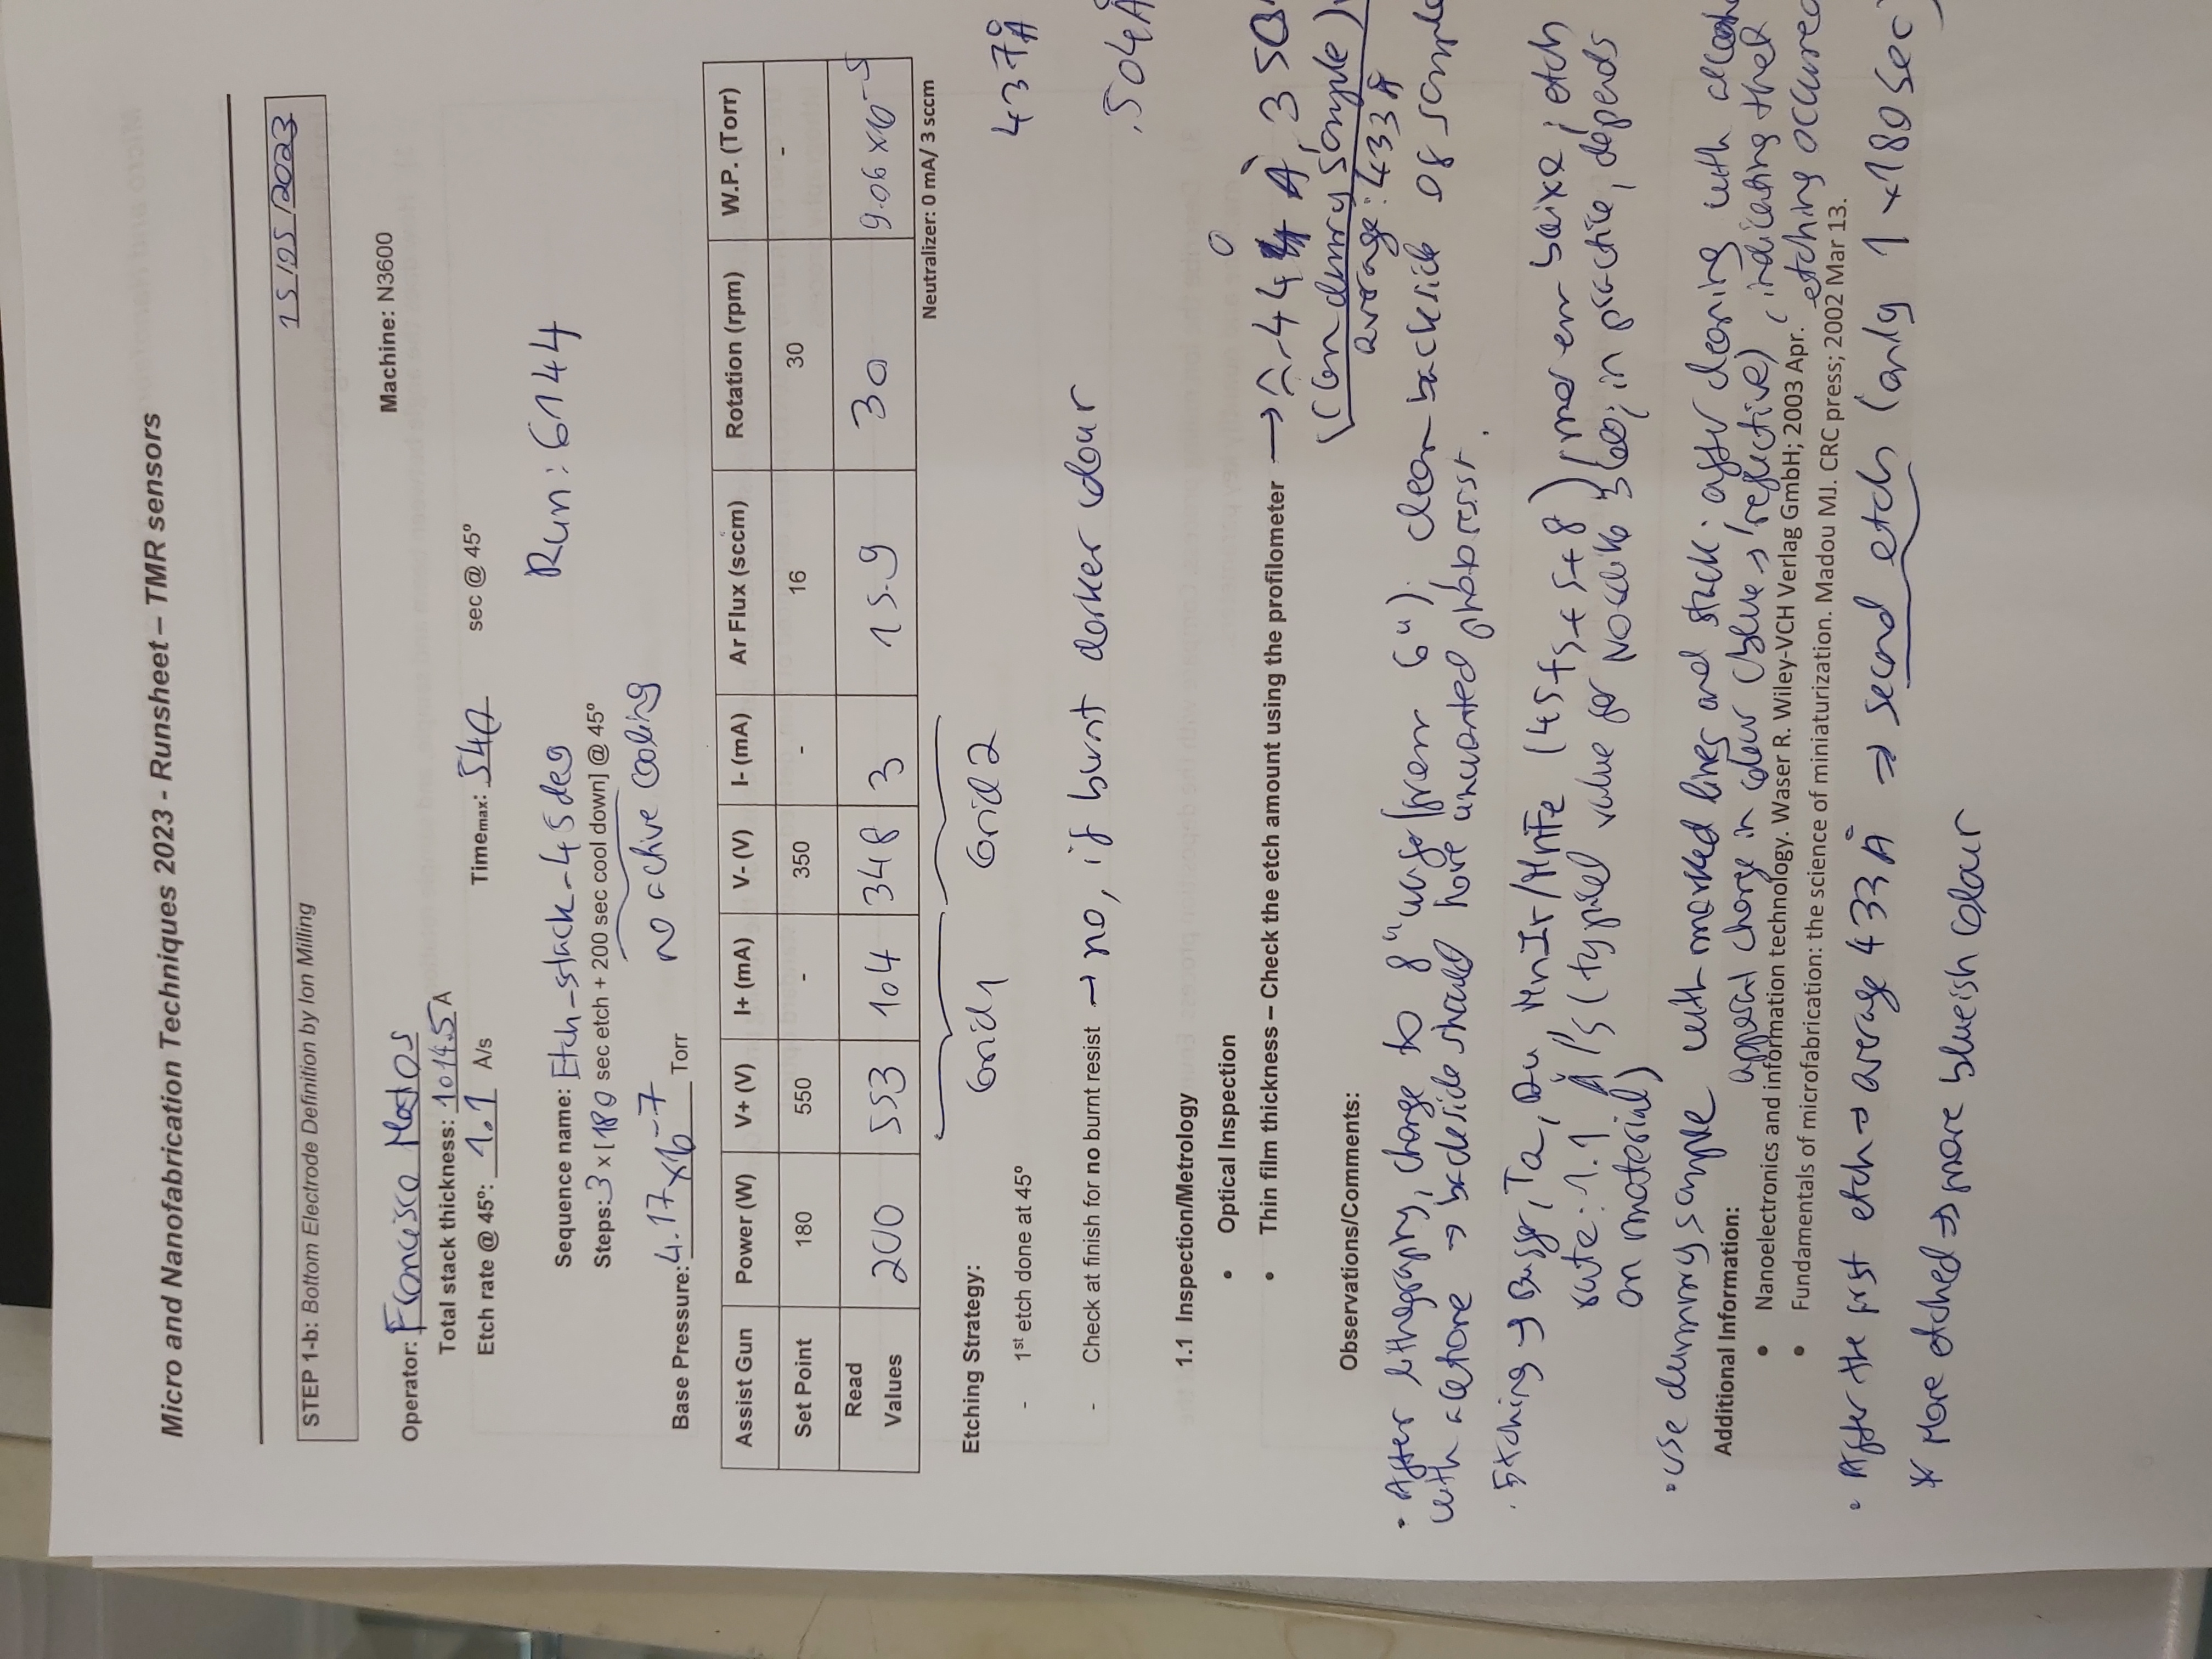 Micro and Nanofabrication Techniques 2023 - Runsheet – TMR sensors
STEP 1-b: Bottom Electrode Definition by Ion Milling
15/05/2023
Operator: Francisco Matos
Machine: N3600
Total stack thickness: 1014.5 A
Etch rate @ 45º: 1.1 A/s
Timemax: 540 sec @ 45º
Sequence name: Etch-stack-45deg
Run: 6144
Steps: 3 x [180 sec etch + 200 sec cool down] @ 45º
no active cooling
Base Pressure: 4.17x10-7 Torr
Assist Gun Power (W) V+ (V) I+ (mA) V- (V) I- (mA) Ar Flux (sccm) Rotation (rpm) W.P. (Torr)
Set Point 180 550 - 350 - 16 30 -
Read Values 200 553 104 348 3 15.9 30 9.06 x10-5
Neutralizer: 0 mA/ 3 sccm
Etching Strategy:
Grid 1 Grid 2
- 1st etch done at 45º
437Å
- Check at finish for no burnt resist → no, if burnt darker colour
504Å
1.1 Inspection/Metrology
• Optical Inspection
• Thin film thickness – Check the etch amount using the profilometer → 440 Å, 350
(on dummy sample)
average: 433 Å
Observations/Comments:
• After lithography, change to 8" (from 6"); clean backside of sample
with acetone → backside should have unwanted photoresist.
. Etching → Buffer, Ta, Ru, MnIr/MnFe (45+5+5+8), em baixo; etch
rate: 1.1 Å/s (typical value for 3600; in practice, depends
on material)
• Use dummy sample with marked lines and stack; after cleaning with
Additional Information:
change in colour (blue → reflective), indicating that
• Nanoelectronics and information technology. Waser R. Wiley-VCH Verlag GmbH; 2003 Apr.
etching occured
• Fundamentals of microfabrication: the science of miniaturization. Madou MJ. CRC press; 2002 Mar 13.
• After the first etch → average 433 Å ⇒ second etch (only 1x180sec)
* More etched → more blueish colour